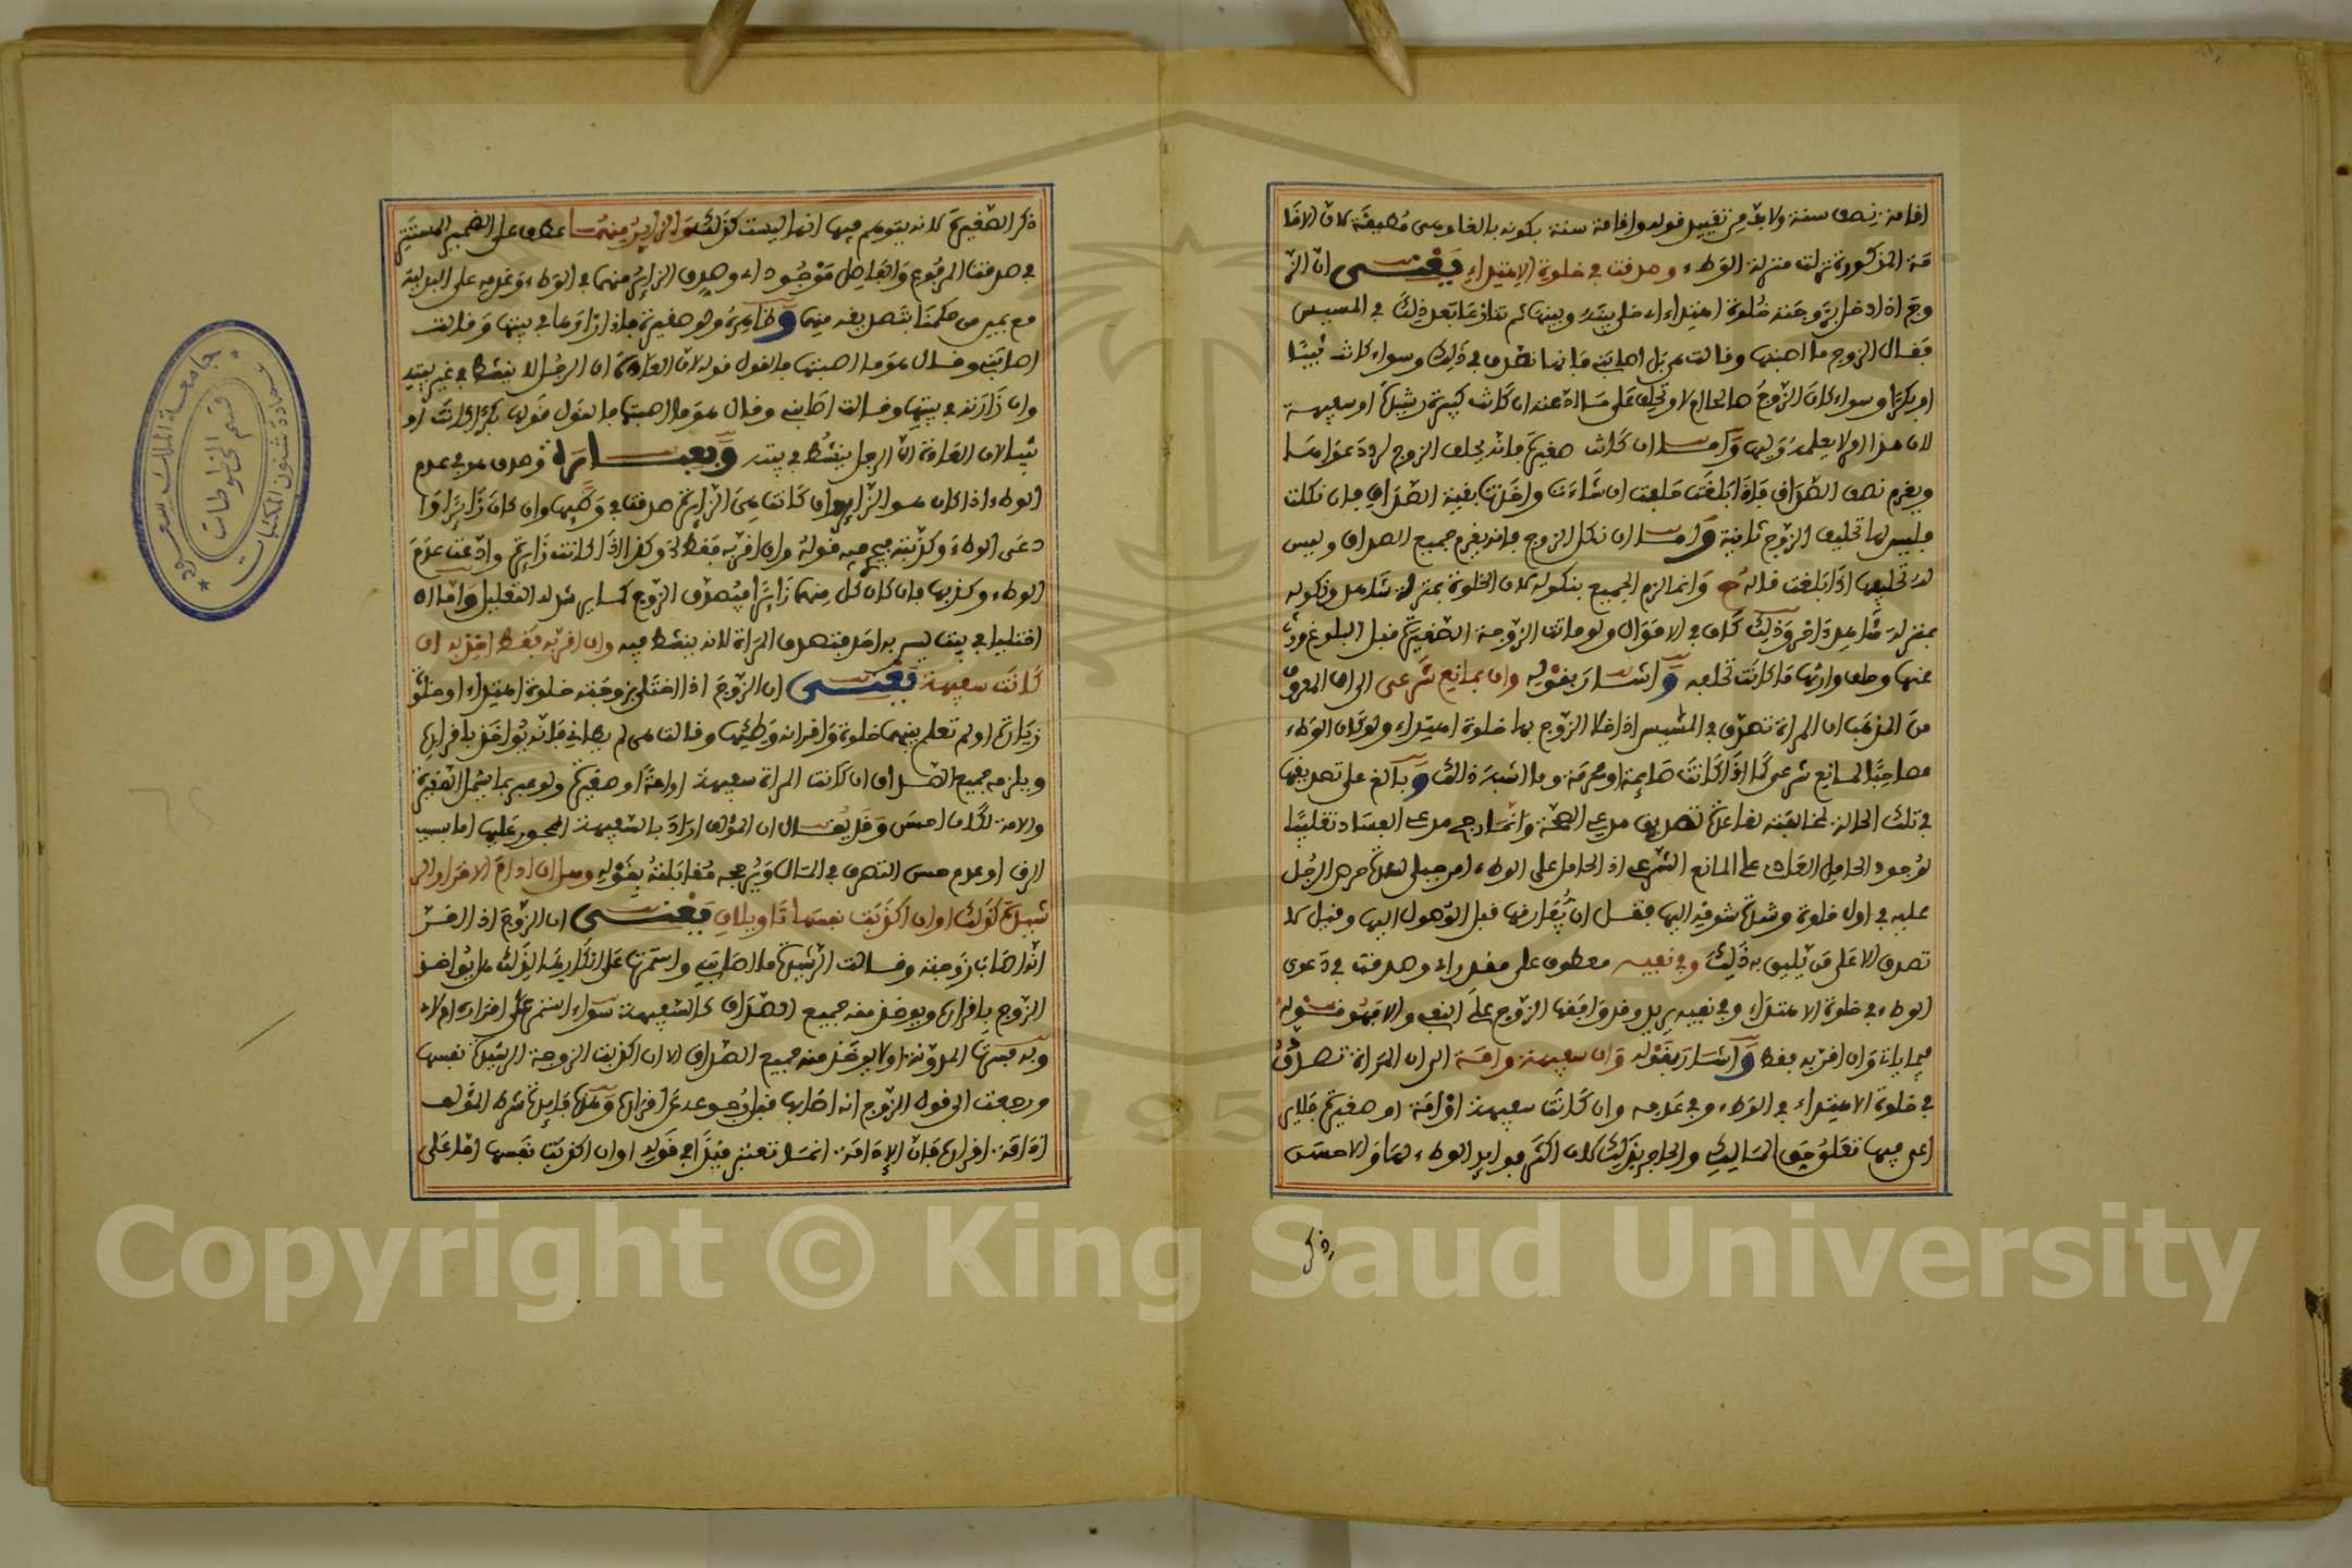 اقامة نصف سنة ولا بد من تقييد قوله واقامة سنة بكونه بالغا وهي مطيقة لان الاقا
مة المذكورة نزلت منزلة الوطء وصدقت في خلوة الاهتداء يعني ان الز
وج اذا دخل بزوجته خلوة اهتداء اي خلى بينه وبينها ثم تنازعا بعد ذلك في المسيس
فقال الزوج ما اصبتها وقالت هي بل اصابني فانها تصدق في ذلك وسواء كانت ثيبا
او بكرا وسواء كان الزوج صالحا ام لا وتحلف على ما ادعته ان كانت كبيرة رشيدة او سفيهة
لان هذا امر لا يعلمه وليها واما ان كانت صغيرة فانه يحلف الزوج لرد دعواها
ويغرم نصف الصداق فاذا بلغت حلفت ان شاءت واخذت بقية الصداق فان نكلت
فليس لها تحليف الزوج ثانية واما ان نكل الزوج فانه يغرم جميع الصداق وليس
له تحليفها اذا بلغت قاله ح وانما الزم الجميع بنكوله لان الخلوة بمنزلة شاهد ونكوله
بمنزلة شاهد اخر وذلك كاف في الاموال ولو ماتت الزوجة الصغيرة قبل البلوغ ورث
عنها وحلف وارثها ما كانت تحلفه واشار بقوله وان بمانع شرعي الى ان المعروف
من المذهب ان المراة تصدق في المسيس اذا خلا الزوج بها خلوة اهتداء ولو كان الوطء
مصاحبا لمانع شرعي كما اذا كانت صائمة او محرمة وما اشبه ذلك وبالغ على تصديقها
في تلك الحالة لمخالفته لقاعدة تصديق مدعي الصحة وانما رجح مدعي الفساد تغليبا
لوجود الحامل العادي على المانع الشرعي اذ الحامل على الوطء امر جبلي لشدة حرص الرجل
عليه في اول خلوة وشدة شوقه اليها فقل ان يفارقها قبل الوصول اليها وقيل لا
تصدق الا على من يليق به ذلك وفي نفيه معطوف على مقدر اي وصدقت في دعوى
الوطء في خلوة الاهتداء وفي نفيه يريد وقد وافقها الزوج على النفي والا فهو قوله
فيما ياتي وان اقر به فقط واشار بقوله وان سفيهة وامة الى ان المراة تصدق
في خلوة الاهتداء في الوطء وفي عدمه وان كانت سفيهة او امة او صغيرة
ذكر
ذكر الصغيرة لانه يتوهم فيها انها ليست كذلك والزائر منهما عطف على الضمير المستتر
في صدقت المرفوع والفاصل موجود اي وصدق الزائر منهما في الوطء وعدمه على البدلية
اصابني وقال هو ما اصبتها فالقول قوله لان العادة ان الرجل لا ينشط في غير بيته
وان زارته في بيته وقالت اصابني وقال هو ما اصبتها فالقول قولها بكرا كانت او
ثيبا لان العادة ان الرجل ينشط في بيته وبعبارة وصدق هو في عدم
الوطء اذا كان هو الزائر وان كانت هي الزائرة صدقت في وطئها وان كان زائرا وا
دعى الوطء وكذبته فيجري فيه قوله وان اقر به فقط وكذا اذا كانت زائرة وادعت عدم
الوطء وكذبها فان كان كل منهما زائرا فيصدق الزوج كما يرشد له التعليل واما ان
اختليا في بيت ليس به احد فتصدق المراة لانه ينشط فيه وان اقر به فقط اخذ به ان
كانت سفيهة يعني ان الزوج اذا اختلى بزوجته خلوة اهتداء او خلوة
زيارة او لم تعلم بينهما خلوة واقر انه وطئها وقالت هي لم يطاني فانه يؤاخذ باقراره
ويلزمه جميع الصداق ان كانت المراة سفيهة او امة او صغيرة ولو عبر بما يشمل الصغيرة
والامة لكان احسن وقد يقال ان المؤلف اراد بالسفيهة المحجور عليها اما بسبب
الرق او عدم حسن التصرف في المال ويرجحه مقابلته بقوله وهل ان ادام الاقرار الر
شيدة كذلك او ان اكذبت نفسها تاويلان يعني ان الزوج اذا اقر
انه اصاب زوجته وقالت الرشيدة ما اصابني واستمرت على انكارها لذلك هل يؤاخذ
الزوج باقراره ويؤخذ منه جميع الصداق كالسفيهة سواء استمر على اقراره ام لا
وبه فسرت المدونة او لا يؤخذ منه جميع الصداق الا ان اكذبت الزوجة الرشيدة نفسها
ورجعت الى قول الزوج انه اصابها قبل رجوعه عن اقراره
ادامة اقراره فان الادامة انما تعتبر قيدا في قوله او ان اكذبت نفسها اما على
جامعة الملك سعود
عمادة شئون المكتبات
قسم المخطوطات
Copyright © King Saud University
195